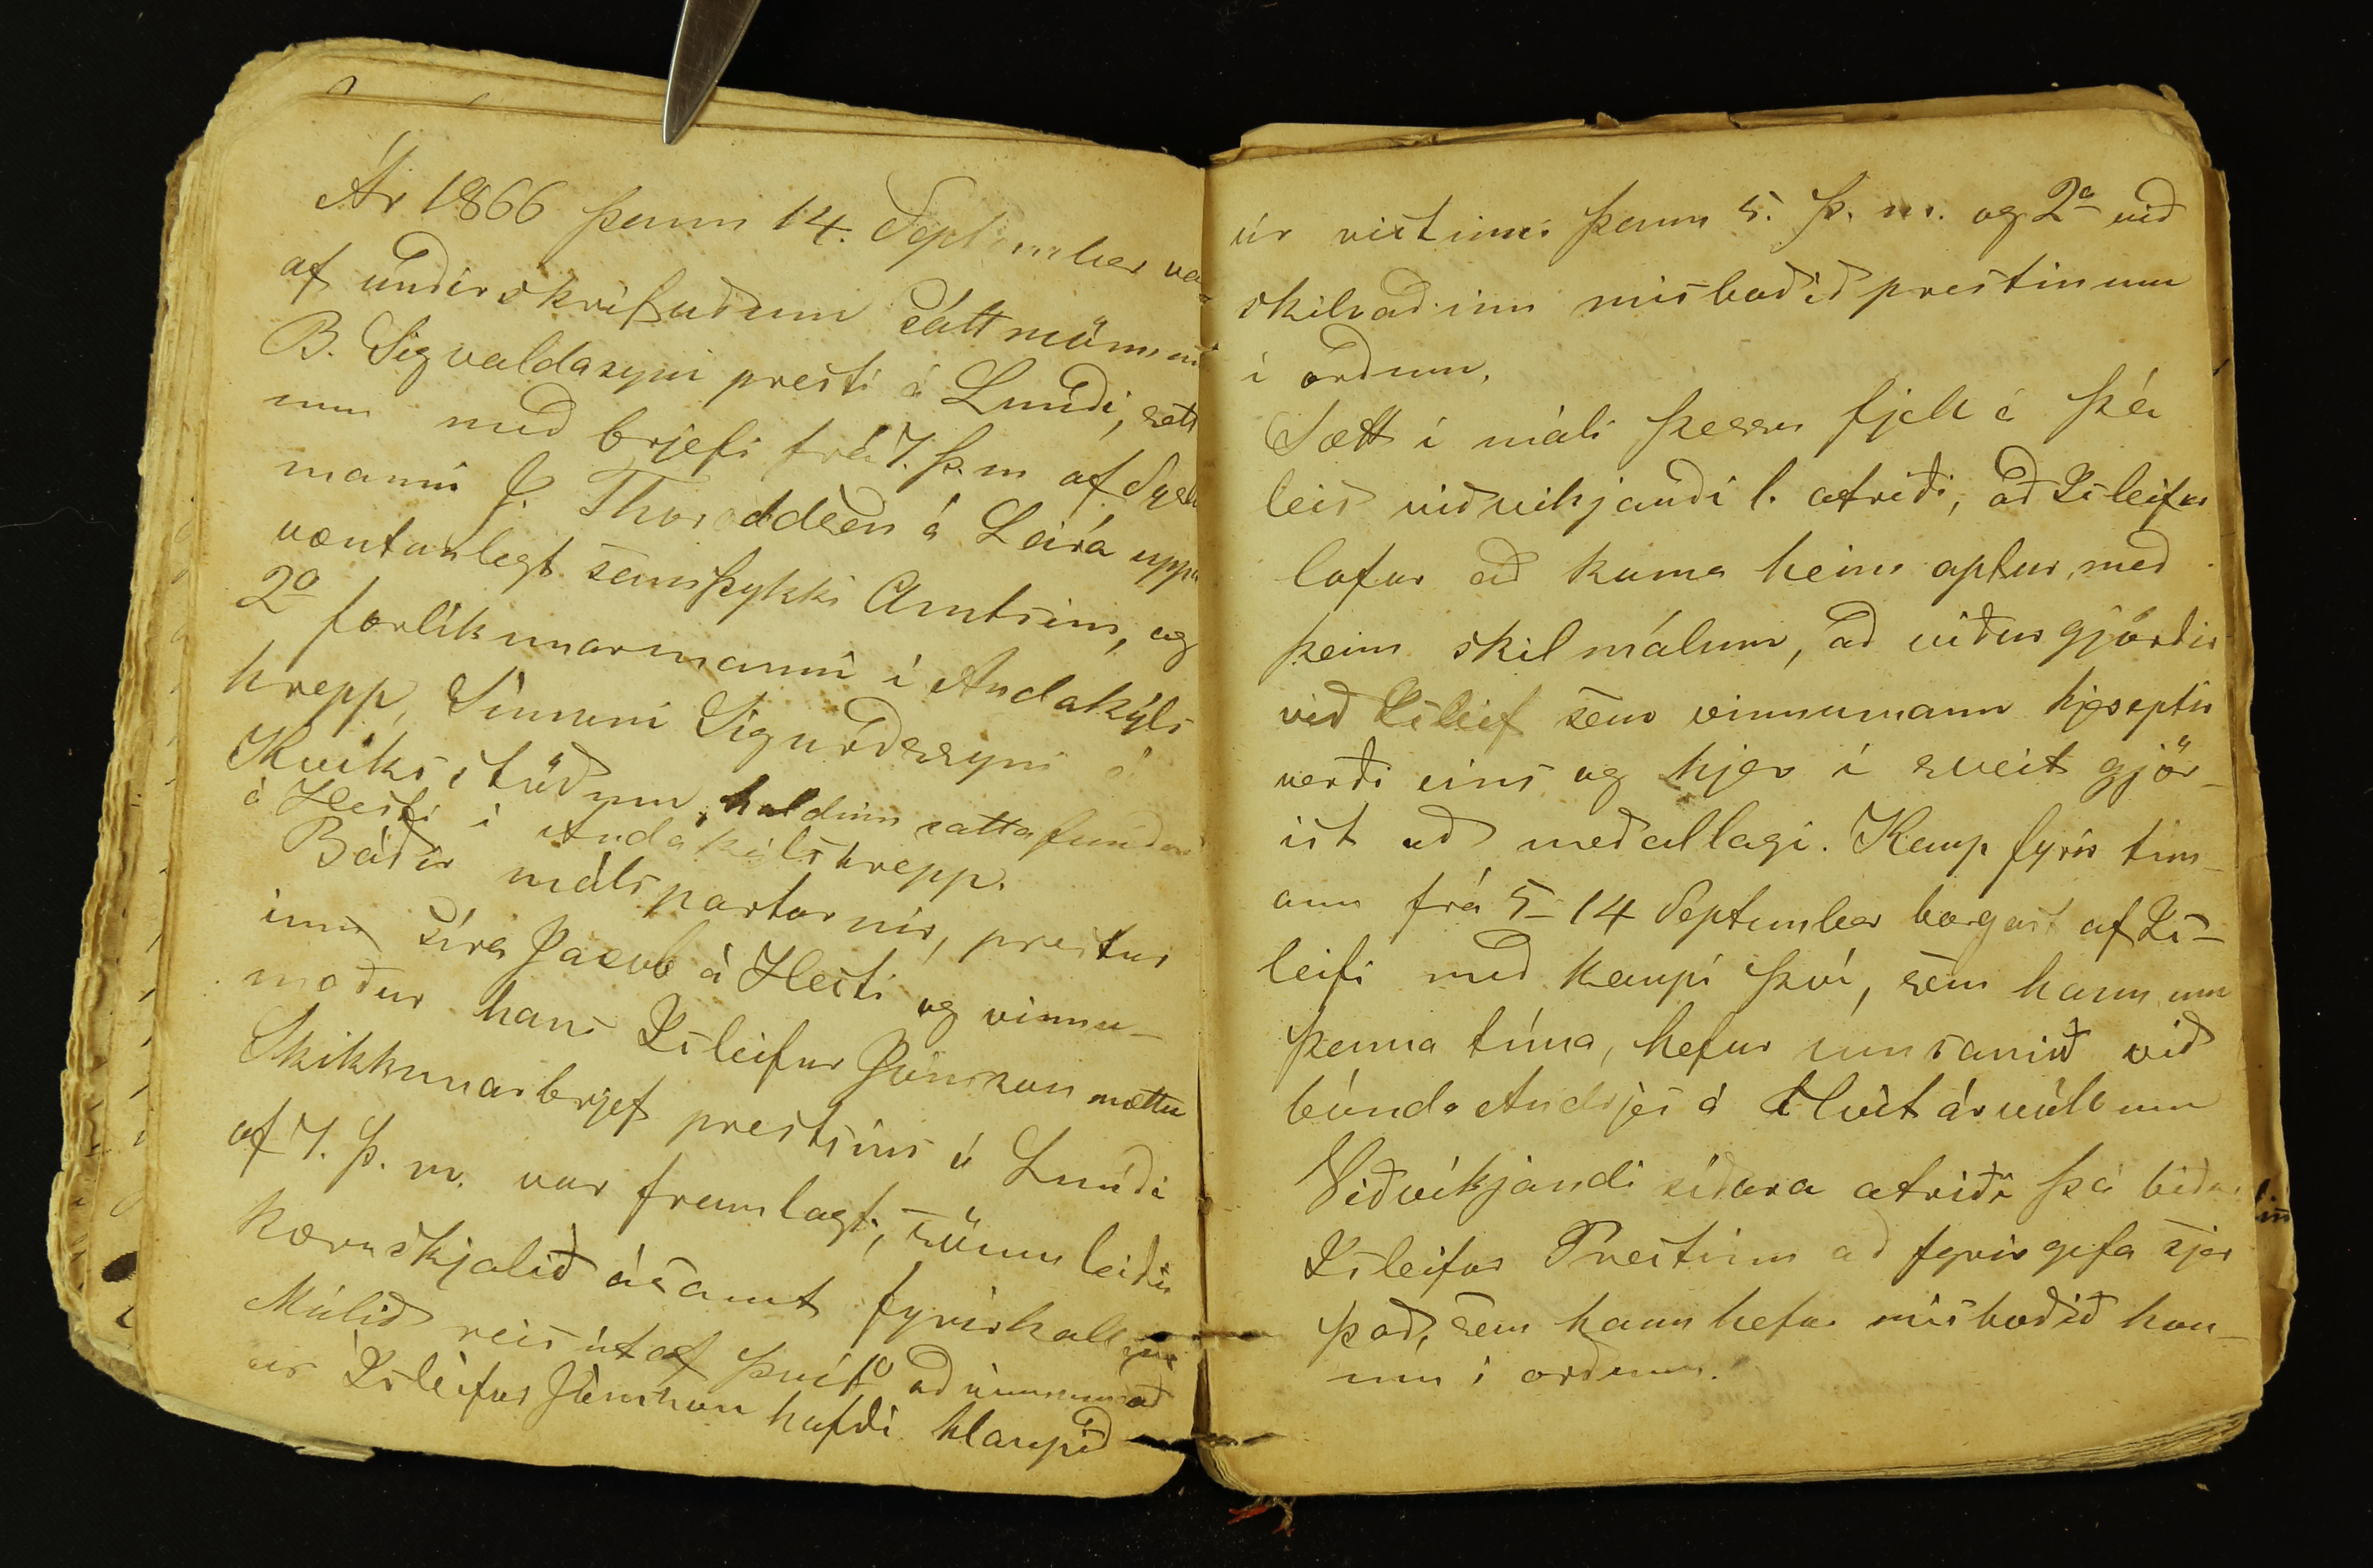 Ár 1866 þann 14. September var
af undirskrifuðum sáttmönnum
B. Sigvaldasyni presti á Lundi, sett
um með brjefi frá 7. þ.m af Syslu
manni J. Thoroddsen á Leirá uppá
væntanlegt samþykki Amtsins, og
2º forlíkunarmanni í Andakýls
hrepp, Simuni Sigurðssyni á
Kvíksstöðum, haldinn sáttafundur
á Hesti í Andakílshrepp.
Báðir málspartarnir, prestur
inn síra Jacob á Hesti og vinnu-
maður hans Isleifur Jónsson mættu
Skikkunarbrjef prestsins á Lundi
af 7. þ. m. var framlagt, sömuleiðis
kæruskjalið ásamt fyrirkallinu
Málið reis útaf því 1º að vinnumað
ur Isleifur Jónsson hafði hlaupið
úr vistinni þann 5. þ. m. og 2º við
skilnaðinn misboðið prestinum
í orðum.
Sætt í máli þessu fjell á þá
leið viðvikjandi 1. atriði, að Isleifur
lofar að koma heim aptur, með
þeim skilmálum, að viðurgjörðir
við Isleif sem vinnumann hjereptir
verði eins og hjer í sveit gjör-
ist að meðallagi. Kaup fyrir tím-
ann frá 5-14 September borgast af Is-
leifi með kaupi því, sem hann um
þenna tíma, hefur umsamið við
bónda Andrjes á Hvítárvöllum
Viðvíkjandi síðara atriði þá biður
Isleifur Prestinn að fyrirgefa sjer
það, sem hann hefur misboðið hon-
um í orðum.